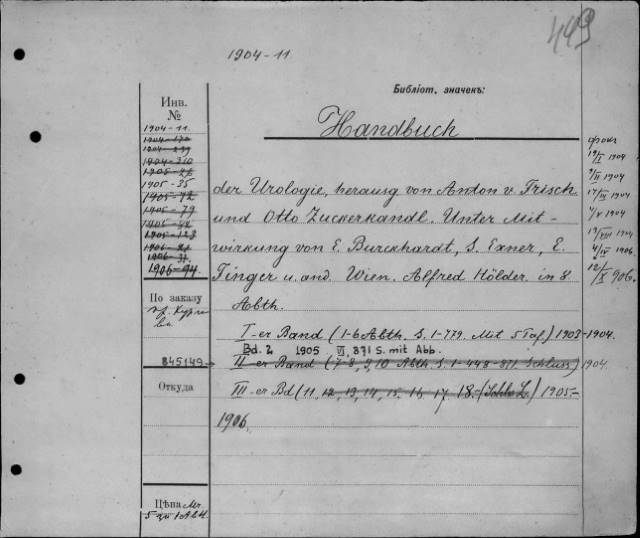 449
1904-11
Библіот. значекъ:
Инв.
№
Handbuch
1904-11.
1904-170
1904-239
1904-310
1905-26
1905-35
1905-72
1905-79
1905-123
1906-94.
19/I 1904
1904
1904
1904
1904
1906
12/X 906.
der Urologie, herausg von Anton v. Frisch
und Otto Zuckerkandl. Unter Mit-
wirkung von E. Burckhardt, S. Exner, E.
Finger u. and. Wien. Alfred Hölder. in 8.
Abth.
По заказу
I-er Band (1-6 Abth. S. 1-779. Mit 5 Taf) 1903-1904.
Bd. 2 1905 VI, 871 S. mit Abb.
845149
II-er Band (7-8, 9, 10 Abth. S. 1-448-871. Schluss) 1904.
Откуда
III-er Bd (11, 12, 13, 14, 15, 16, 17, 18.-(Schluß.) 1905-
1906.
Цѣна Mr.